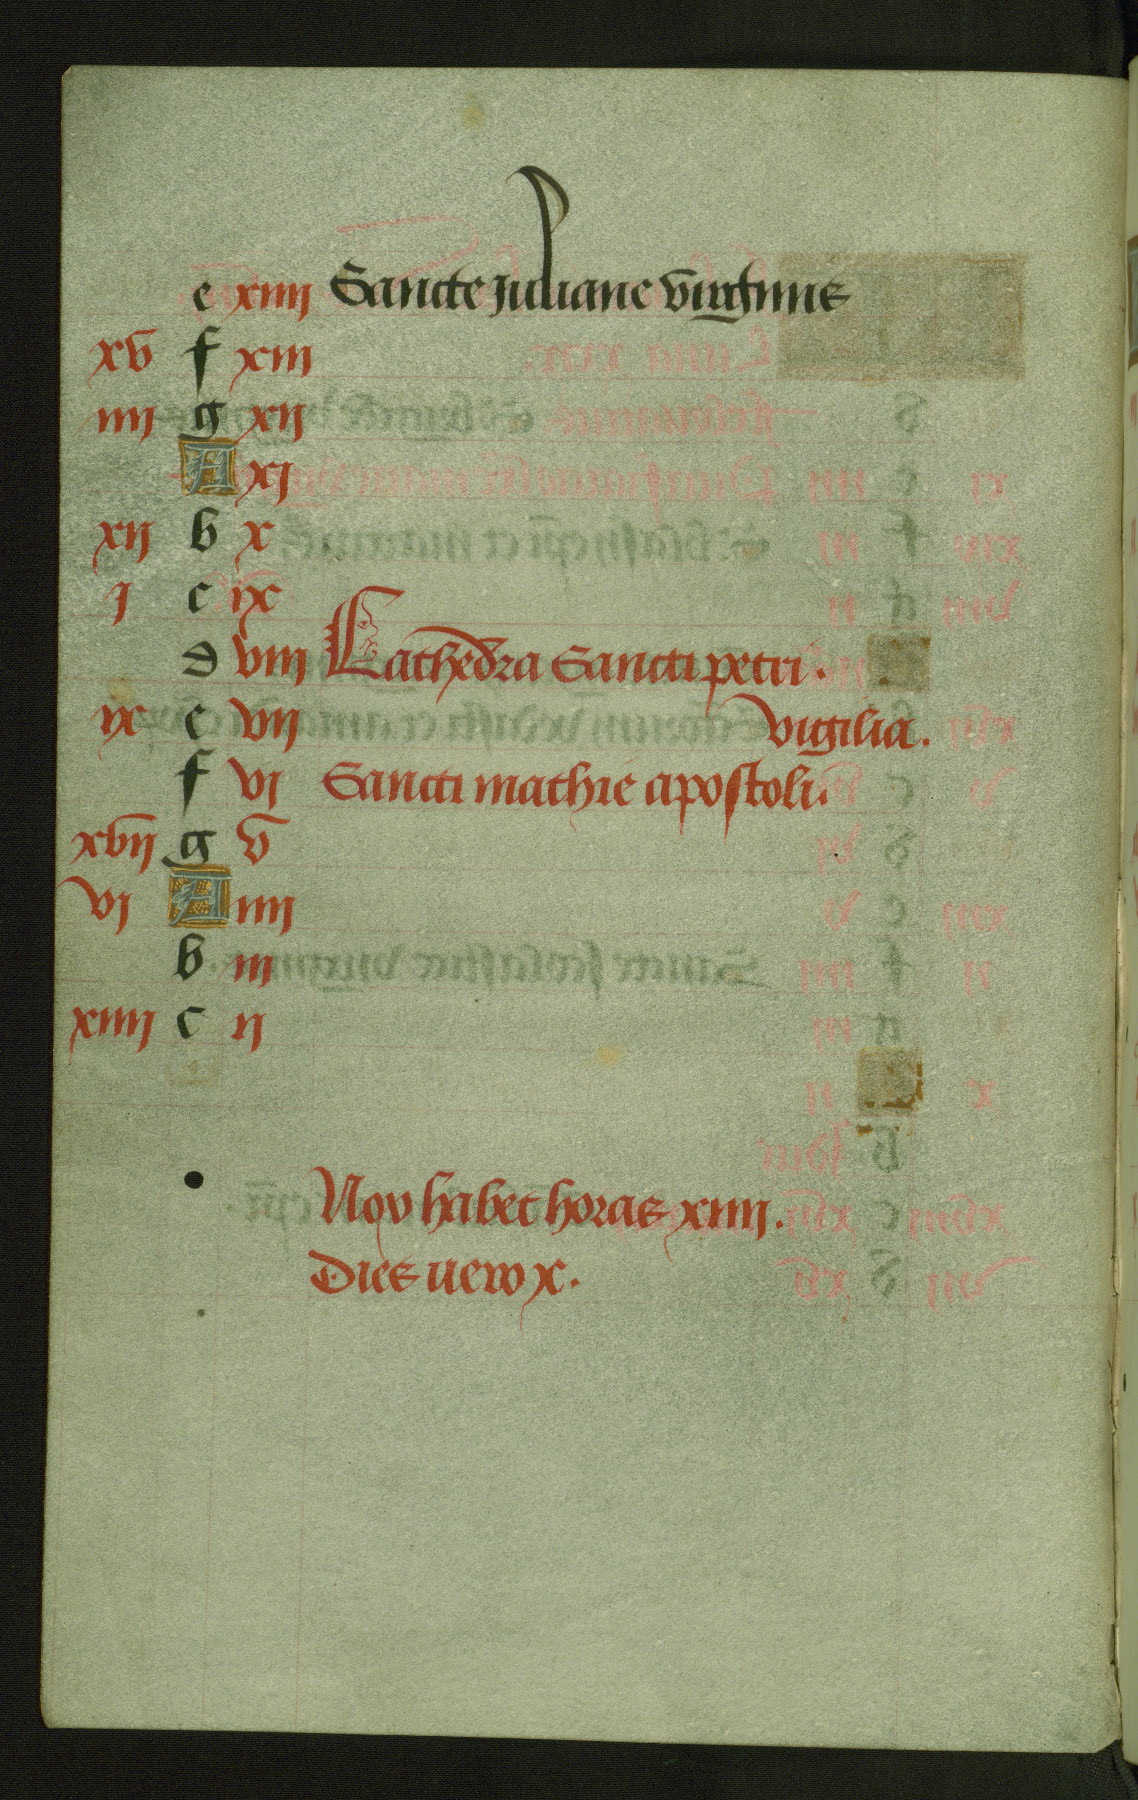 e xiiii Sancte juliane virginis
xv f xiii
iiii g xii
A xi
xii b x
j c ix
d viii Cathedra Sancti petri.
ix e vii vigilia.
f vi Sancti mathie apostoli.
xvii g v
vi A iiii
b iii
xiiii c ii
Nox habet horas xiiii.
Dies vero x.